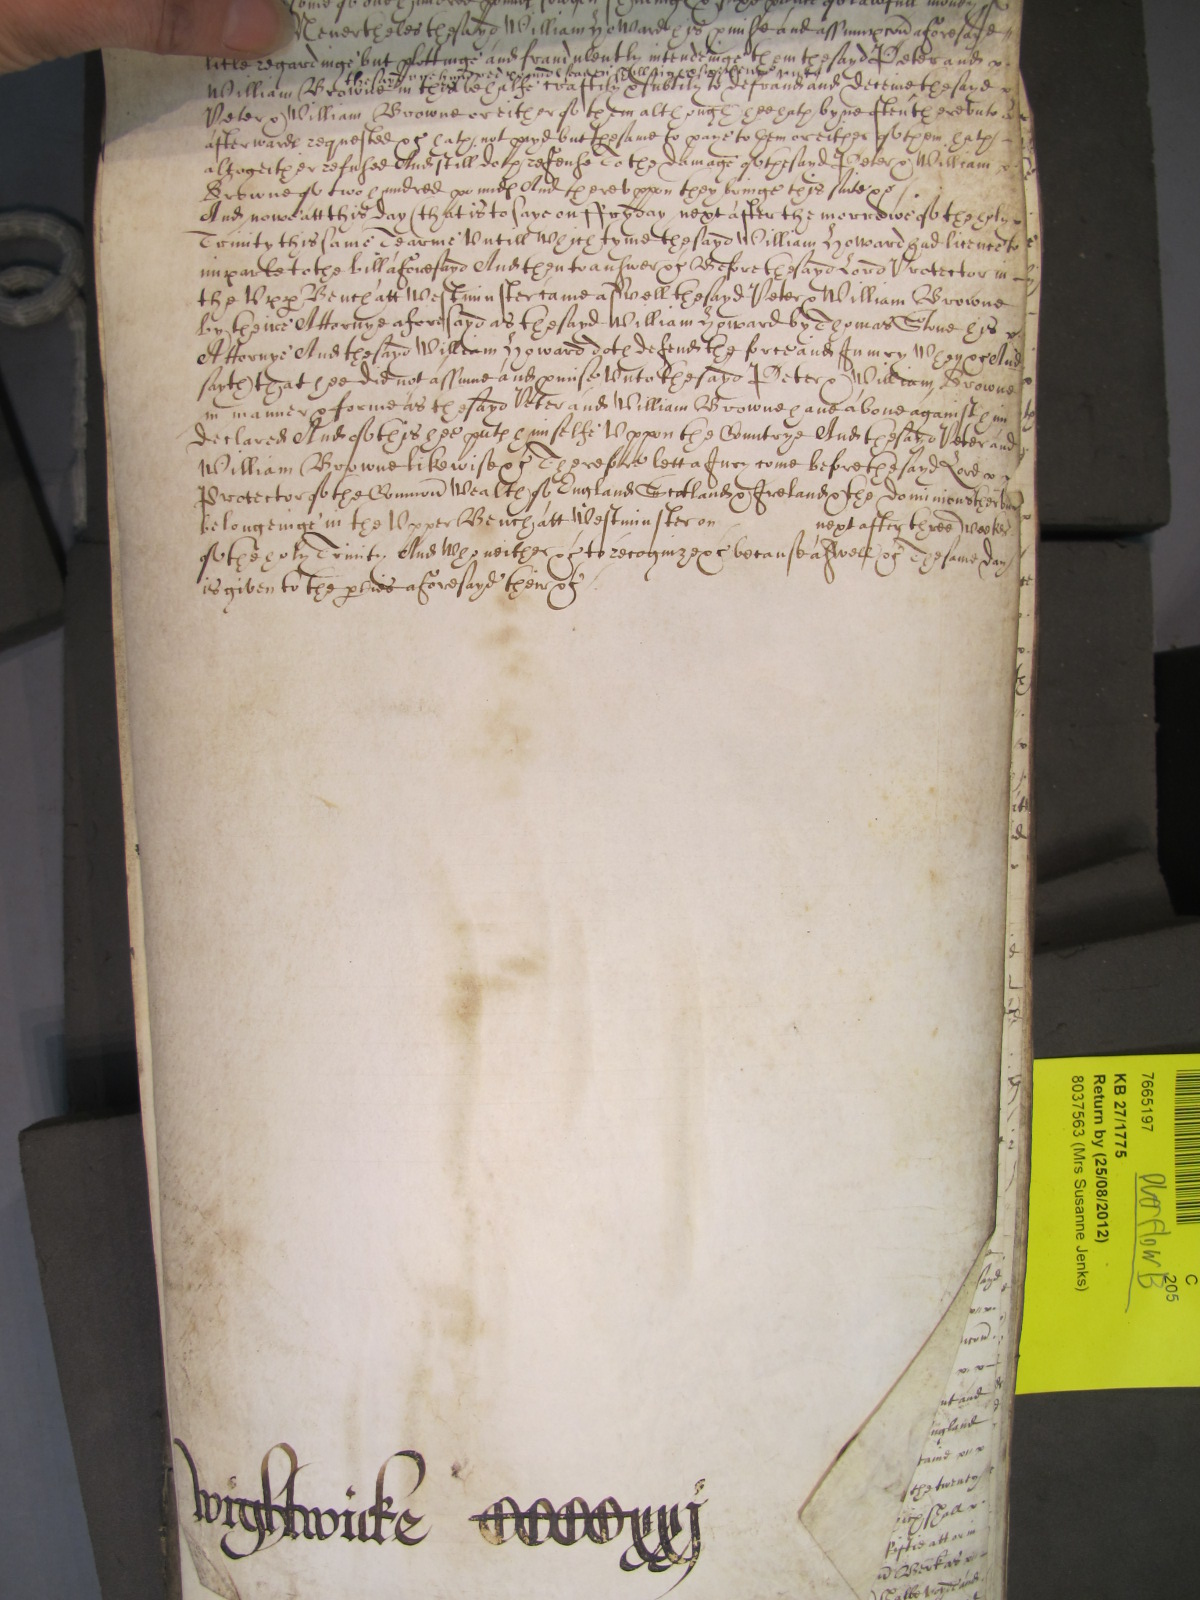 Nevertheles the sayd William Howard his pmise and assumpcon aforesayd
litle regardinge but plottinge and fraudulently intendinge them the sayd Peter and
the sayd one hundred pounds seaven shillings sixe pence
William Browne in this behalfe craftily & subtily to defraud and deceive the sayd
Peter & William Browne or either of them although hee hath byne often thereunto
afterwards requested &c hath not payd but the same to paye to them or either of them hath
altogeither refused And still doth refuse To the damage of the sayd Peter & William
Browne of two hundred pounds And thereuppon they bringe this suite &c
And now att this day (that is to saye on Fryday next after the morrowe of the holy
Trinity this same Tearme Untill which tyme the sayd William Howard had licence to
imparle to the bill aforesayd And then to answer &c Before the sayd Lord Protector in
the Upp Bench att Westminster came aswell the sayd Peter & William Browne
by theire Attornye aforesayd as the sayd William Howard by Thomas Stone his
Attornye And the sayd William Howard doth defend the force and Iniury When &c And
sayth that hee did not assume and pmise Unto the sayd Peter & William Browne
in manner & forme as the sayd Peter and William Browne have above against him
declared And of this hee puth himselfe Uppon the Countrye And the sayd Peter and
William Browne likewise &c Therefore lett a Jury come before the sayd Lord
Protector of the Common Wealth of England Scotland & Ireland & the dominions thereunto
belongeinge in the Upper Bench att Westminster on next after three weekes
of the holy Trinity And Who neither &c to recognize &c because aswell &c The same day
is given to the pties aforesayd there &c
Wightwicke CCCCxxj
sayd
ut and
ngland
the twenty
7665197
KB 27/1775
Return by (25/08/2012)
8037563 (Mrs Susanne Jenks)
Overflow B
C
205